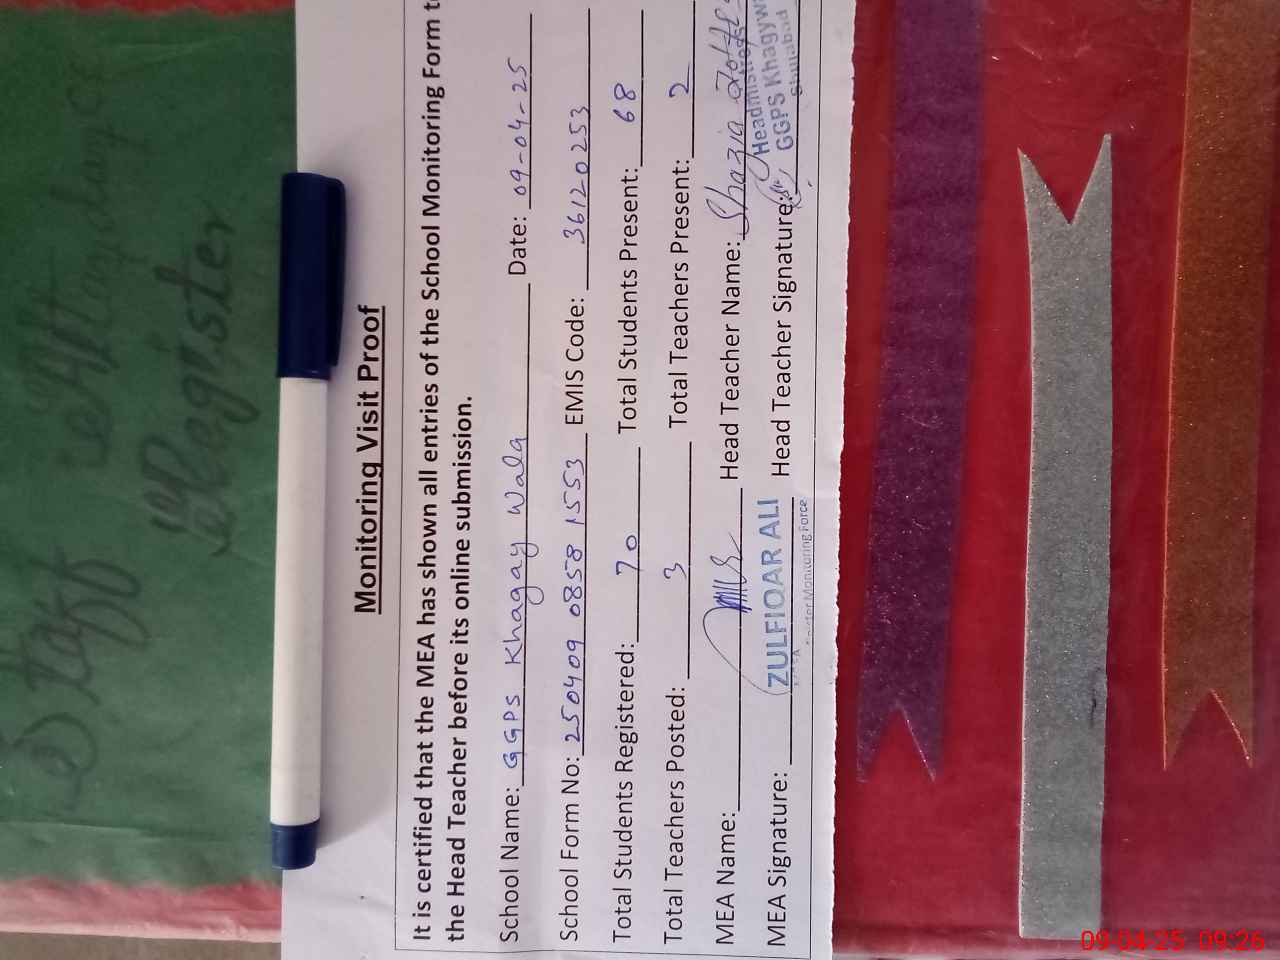 Staff
Register
Monitoring Visit Proof
It is certified that the MEA has shown all entries of the School Monitoring Form to
the Head Teacher before its online submission.
School Name: GGPS Khagay Wala Date: 09-04-25
School Form No: 250409 0858 1553 EMIS Code: 36120253
Total Students Registered: 70 Total Students Present: 68
Total Teachers Posted: 3 Total Teachers Present: 2
MEA Name: Head Teacher Name: Shazia
MEA Signature: ZULFIQAR ALI Head Teacher Signature:
Monitoring Force
Headmistress
GGPS Khagywala
Shujabad
09-04-25 09:26